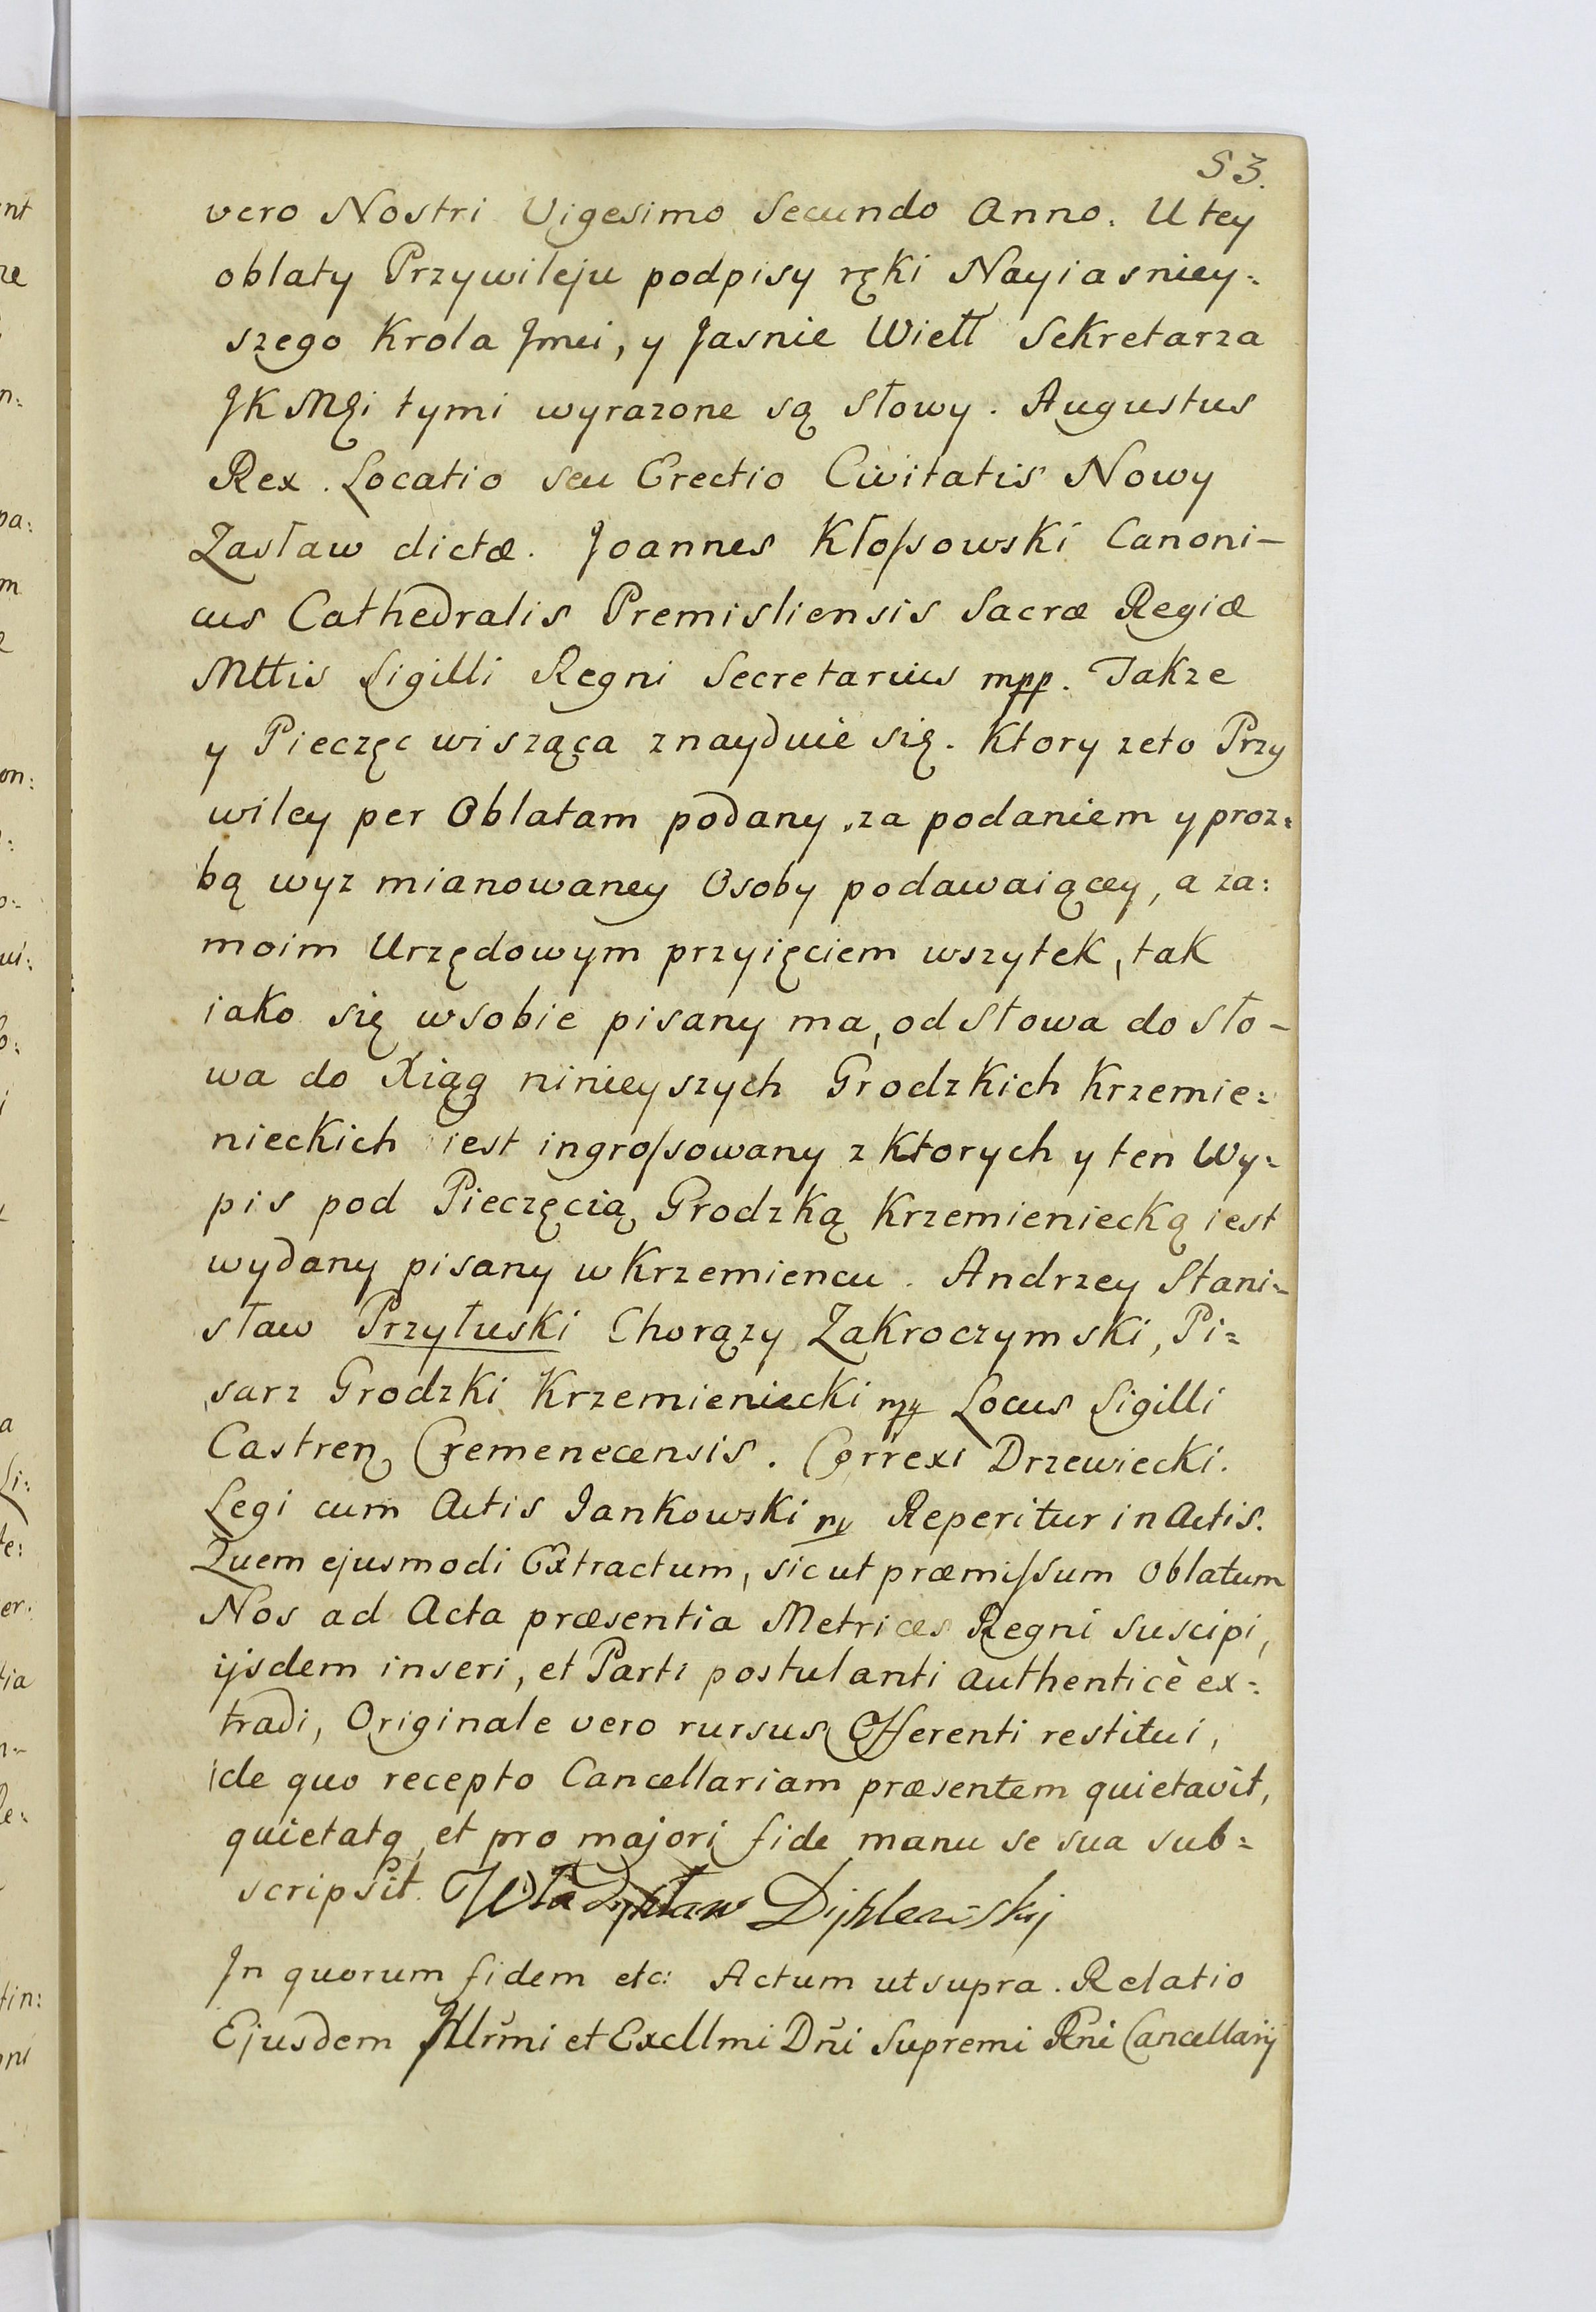 53.
vero Nostri Vigesimo Secundo Anno. U tey
oblaty Przywileju podpisy ręki Nayiasniey:
szego Krola Jmci, y Jasnie Wiell Sekretarza
JKMęi tymi wyrazone są słowy. Augustus
Rex. Locatio seu Erectio Civitatis Nowy
Zasław dictæ. Joannes Kłossowski Canoni-
cus Cathedralis Premisliensis Sacræ Regiæ
Mttis Sigilli Regni Secretarius mpp. Takze
y Pieczęc wisząca znayduie się. Ktory zeto Przy
wiley per Oblatam podany, za podaniem y proz:
bą wyz mianowaney Osoby podawaiącey, a za:
moim Urzędowym przyięciem wszytek, tak
iako się w sobie pisany ma, od słowa do sło-
wa do Xiąg ninieyszych Grodzkich Krzemie:
nieckich iest ingrossowany z ktorych y ten Wy:
pis pod Pieczęcią Grodzką Krzemieniecką iest
wydany pisany w Krzemiencu. Andrzey Stani-
sław Przyłuski Chorązy Zakroczymski, Pi=
sarz Grodzki Krzemieniecki mp Locus Sigilli
Castren Cremenecensis. Correxi Drzewiecki.
Legi cum Actis Jankowski mp Reperitur in Actis.
Quem ejusmodi Extractum, sicut præmissum Oblatum
Nos ad Acta præsentia Metrices Regni suscipi,
ijsdem inseri, et Parti postulanti authenticè ex:
tradi, Originale vero rursus Offerenti restitui,
de quo recepto Cancellariam præsentem quietavit,
quietatq, et pro majori fide manu se sua sub=
scripsit. Władysław
In quorum fidem etc: Actum ut supra. Relatio
Ejusdem Jllrmi et Excllmi Dñi Supremi Rñi Cancellarij